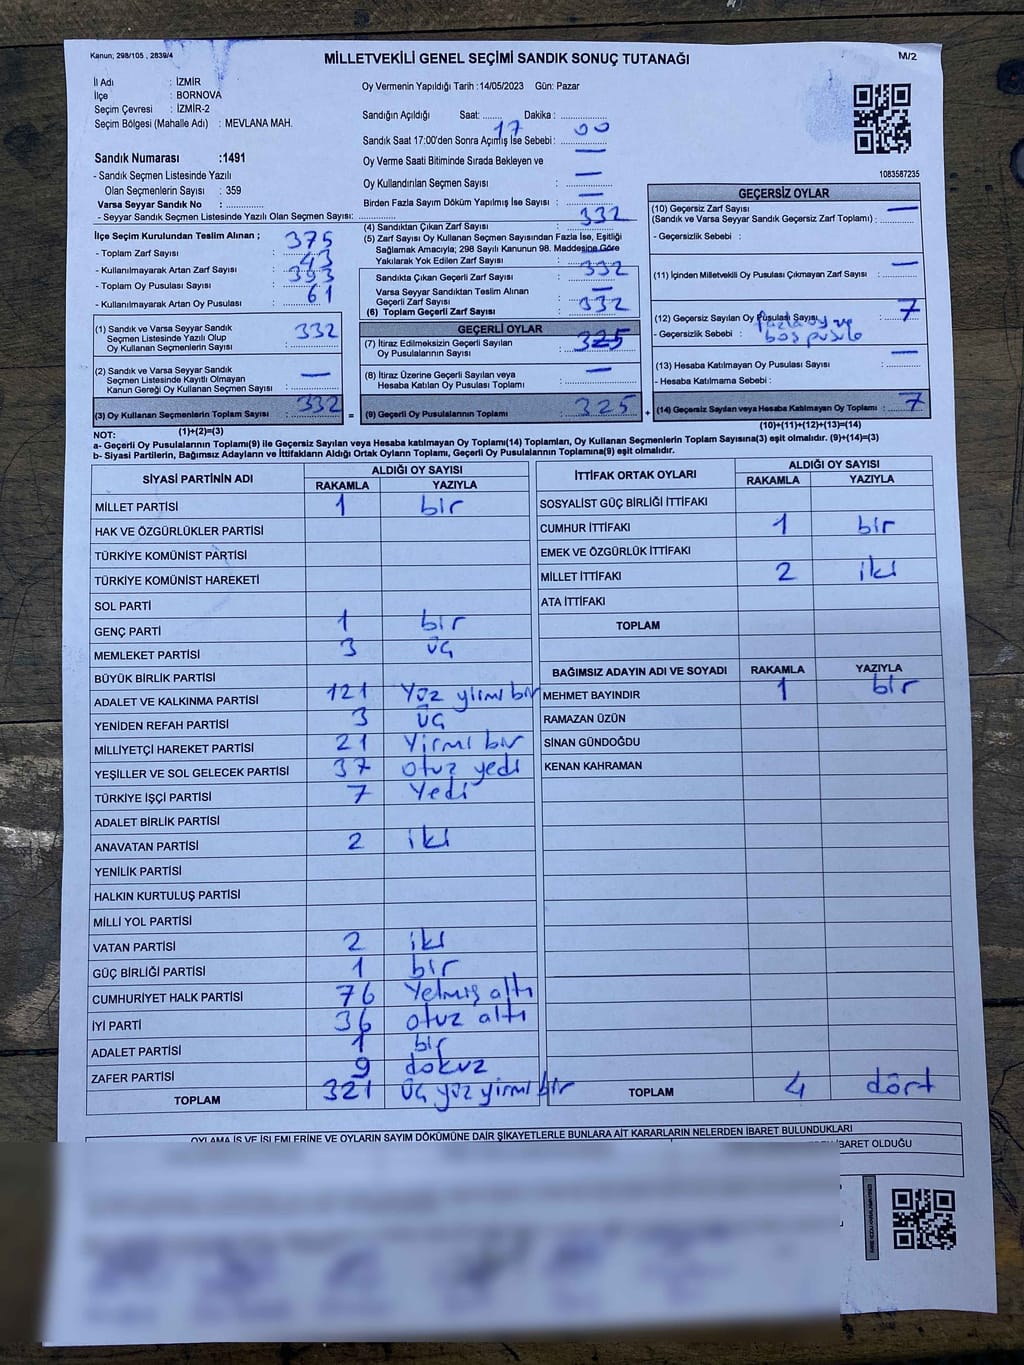 Kanun; 298/105 , 2839/4
MİLLETVEKİLİ GENEL SEÇİMİ SANDIK SONUÇ TUTANAĞI
M/2
İl Adı : İZMİR
İlçe : BORNOVA
Seçim Çevresi : İZMİR-2
Seçim Bölgesi (Mahalle Adı) : MEVLANA MAH.
Sandık Numarası :1491
- Sandık Seçmen Listesinde Yazılı
Olan Seçmenlerin Sayısı : 359
Varsa Seyyar Sandık No :
- Seyyar Sandık Seçmen Listesinde Yazılı Olan Seçmen Sayısı:
Oy Vermenin Yapıldığı Tarih :14/05/2023 Gün: Pazar
Sandığın Açıldığı Saat: 17 Dakika : 00
Sandık Saat 17:00'den Sonra Açılmış İse Sebebi: —
Oy Verme Saati Bitiminde Sırada Bekleyen ve
Oy Kullandırılan Seçmen Sayısı : —
Birden Fazla Sayım Döküm Yapılmış İse Sayısı : —
1083587235
İlçe Seçim Kurulundan Teslim Alınan ;
- Toplam Zarf Sayısı : 375
- Kullanılmayarak Artan Zarf Sayısı : 43
- Toplam Oy Pusulası Sayısı : 393
- Kullanılmayarak Artan Oy Pusulası : 61
(1) Sandık ve Varsa Seyyar Sandık
Seçmen Listesinde Yazılı Olup
Oy Kullanan Seçmenlerin Sayısı : 332
(2) Sandık ve Varsa Seyyar Sandık
Seçmen Listesinde Kayıtlı Olmayan
Kanun Gereği Oy Kullanan Seçmen Sayısı : —
(3) Oy Kullanan Seçmenlerin Toplam Sayısı : 332
(1)+(2)=(3)
(4) Sandıktan Çıkan Zarf Sayısı : 332
(5) Zarf Sayısı Oy Kullanan Seçmen Sayısından Fazla İse, Eşitliği
Sağlamak Amacıyla; 298 Sayılı Kanunun 98. Maddesine Göre
Yakılarak Yok Edilen Zarf Sayısı :
Sandıkta Çıkan Geçerli Zarf Sayısı : 332
Varsa Seyyar Sandıktan Teslim Alınan
Geçerli Zarf Sayısı : —
(6) Toplam Geçerli Zarf Sayısı : 332
GEÇERLİ OYLAR
(7) İtiraz Edilmeksizin Geçerli Sayılan
Oy Pusulalarının Sayısı : 325
(8) İtiraz Üzerine Geçerli Sayılan veya
Hesaba Katılan Oy Pusulası Toplamı : —
= (9) Geçerli Oy Pusulalarının Toplamı : 325
GEÇERSİZ OYLAR
(10) Geçersiz Zarf Sayısı
(Sandık ve Varsa Seyyar Sandık Geçersiz Zarf Toplamı) : —
- Geçersizlik Sebebi :
(11) İçinden Milletvekili Oy Pusulası Çıkmayan Zarf Sayısı : —
(12) Geçersiz Sayılan Oy Pusulası Sayısı : 7
- Geçersizlik Sebebi : fazla oy ve
boş pusula
(13) Hesaba Katılmayan Oy Pusulası Sayısı : —
- Hesaba Katılmama Sebebi :
+ (14) Geçersiz Sayılan veya Hesaba Katılmayan Oy Toplamı : 7
(10)+(11)+(12)+(13)=(14)
NOT:
a- Geçerli Oy Pusulalarının Toplamı(9) ile Geçersiz Sayılan veya Hesaba katılmayan Oy Toplamı(14) Toplamları, Oy Kullanan Seçmenlerin Toplam Sayısına(3) eşit olmalıdır. (9)+(14)=(3)
b- Siyasi Partilerin, Bağımsız Adayların ve İttifakların Aldığı Ortak Oyların Toplamı, Geçerli Oy Pusulalarının Toplamına(9) eşit olmalıdır.
SİYASİ PARTİNİN ADI ALDIĞI OY SAYISI
RAKAMLA YAZIYLA
MİLLET PARTİSİ 1 bir
HAK VE ÖZGÜRLÜKLER PARTİSİ
TÜRKİYE KOMÜNİST PARTİSİ
TÜRKİYE KOMÜNİST HAREKETİ
SOL PARTİ
GENÇ PARTİ 1 bir
MEMLEKET PARTİSİ 3 üç
BÜYÜK BİRLİK PARTİSİ
ADALET VE KALKINMA PARTİSİ 121 Yüz yirmi bir
YENİDEN REFAH PARTİSİ 3 üç
MİLLİYETÇİ HAREKET PARTİSİ 21 Yirmi bir
YEŞİLLER VE SOL GELECEK PARTİSİ 37 otuz yedi
TÜRKİYE İŞÇİ PARTİSİ 7 Yedi
ADALET BİRLİK PARTİSİ
ANAVATAN PARTİSİ 2 iki
YENİLİK PARTİSİ
HALKIN KURTULUŞ PARTİSİ
MİLLİ YOL PARTİSİ
VATAN PARTİSİ 2 iki
GÜÇ BİRLİĞİ PARTİSİ 1 bir
CUMHURİYET HALK PARTİSİ 76 Yetmiş altı
İYİ PARTİ 36 otuz altı
ADALET PARTİSİ 1 bir
ZAFER PARTİSİ 9 dokuz
TOPLAM 321 üç yüz yirmi bir
İTTİFAK ORTAK OYLARI ALDIĞI OY SAYISI
RAKAMLA YAZIYLA
SOSYALİST GÜÇ BİRLİĞİ İTTİFAKI
CUMHUR İTTİFAKI 1 bir
EMEK VE ÖZGÜRLÜK İTTİFAKI
MİLLET İTTİFAKI 2 iki
ATA İTTİFAKI
TOPLAM
BAĞIMSIZ ADAYIN ADI VE SOYADI RAKAMLA YAZIYLA
MEHMET BAYINDIR 1 bir
RAMAZAN ÜZÜN
SİNAN GÜNDOĞDU
KENAN KAHRAMAN
TOPLAM 4 dört
OYLAMA İŞ VE İŞLEMLERİNE VE OYLARIN SAYIM DÖKÜMÜNE DAİR ŞİKAYETLERLE BUNLARA AİT KARARLARIN NELERDEN İBARET BULUNDUKLARI
İBARET OLDUĞU